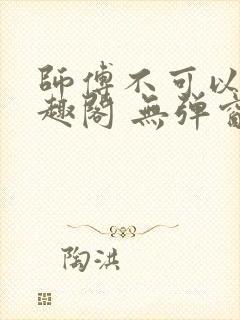 師傅不可以
趣閣 無彈窗
陶洪